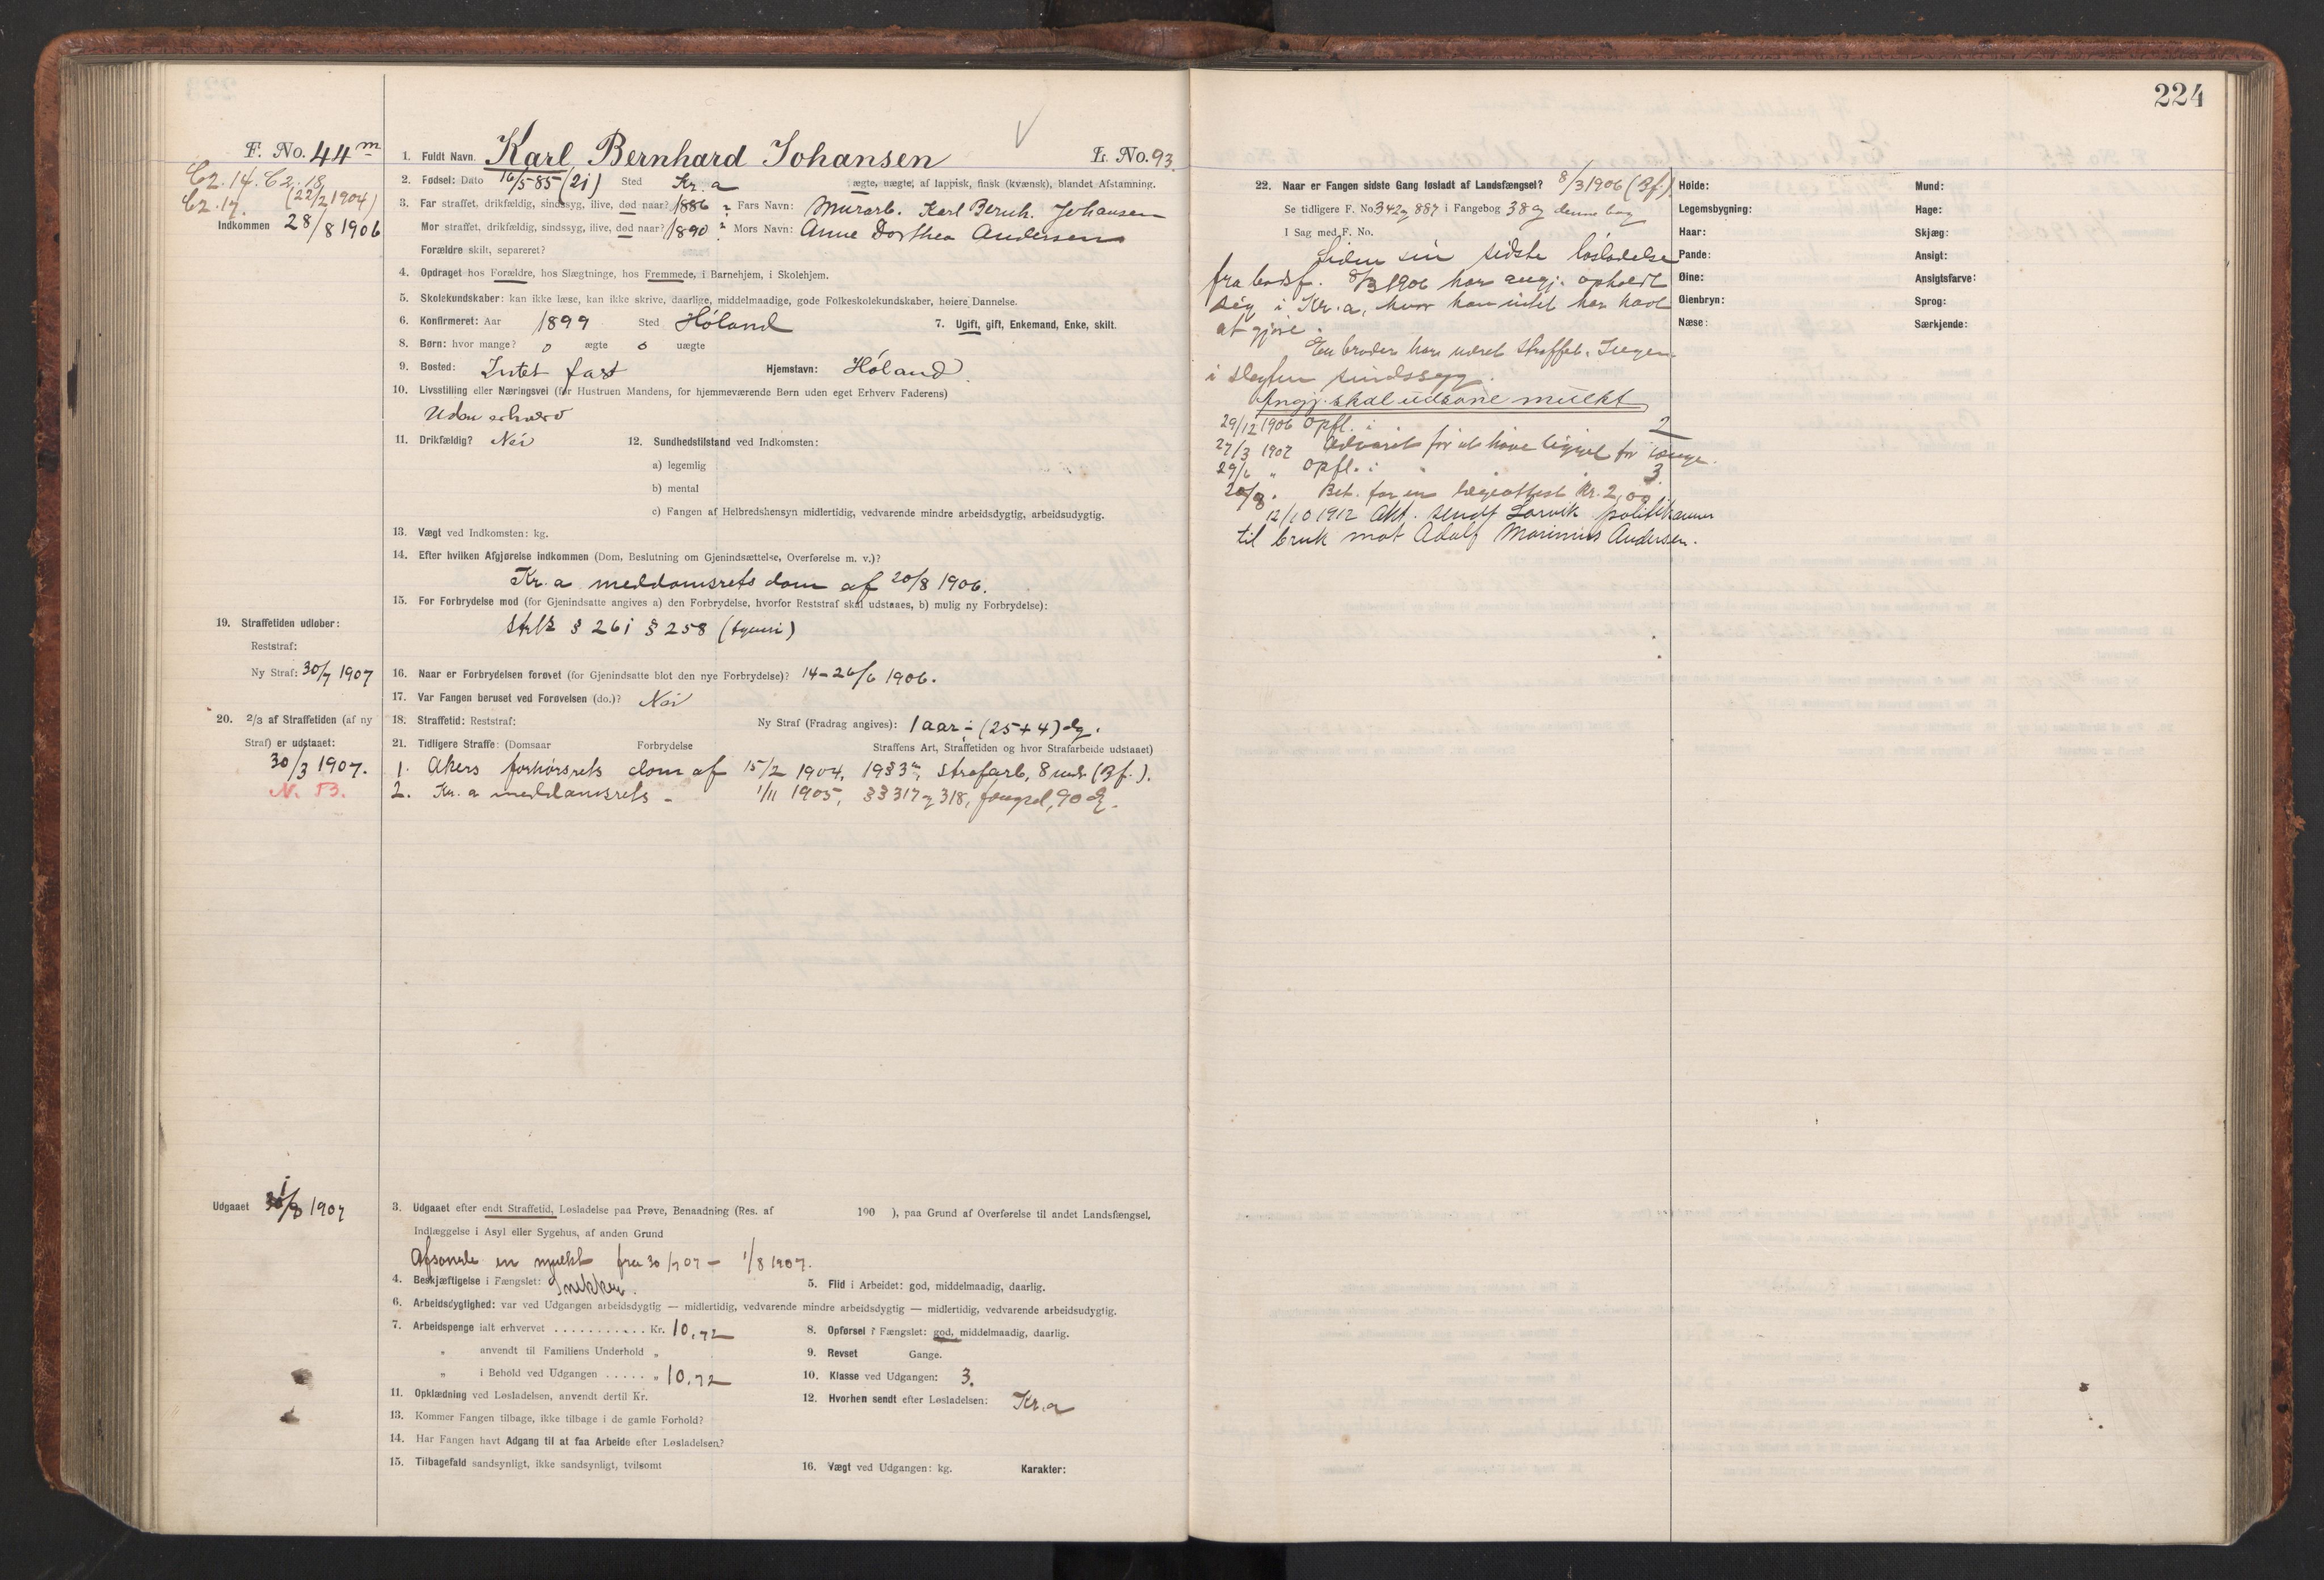 224
F. No. 44 m
Cz. 14. Cz. 18.
Cz. 17. (22/2 1904)
Indkommen 28/8 1906
1. Fuldt Navn. Karl Bernhard Johansen L. No. 93.
2. Fødsel: Dato 16/5 85 (21) Sted Kr.a ægte, uægte, af lappisk, finsk (kvænsk), blandet Afstamning.
3. Far straffet, drikfældig, sindssyg, ilive, død naar? 1886 ? Fars Navn: Murarb. Karl Bernh. Johansen
Mor straffet, drikfældig, sindssyg, ilive, død naar? 1890 ? Mors Navn: Anne Dorthea Andersen
Forældre skilt, separeret?
4. Opdraget hos Forældre, hos Slægtninge, hos Fremmede, i Barnehjem, i Skolehjem.
5. Skolekundskaber: kan ikke læse, kan ikke skrive, daarlige, middelmaadige, gode Folkeskolekundskaber, høiere Dannelse.
6. Konfirmeret: Aar 1899 Sted Høland 7. Ugift, gift, Enkemand, Enke, skilt.
8. Børn: hvor mange? 0 ægte 0 uægte
9. Bosted: Intet fast Hjemstavn: Høland
10. Livsstilling eller Næringsvei (før Hustruen Mandens, for hjemmeværende Børn uden eget Erhverv Faderens)
Uden erhverv
11. Drikfældig? Nei 12. Sundhedstilstand ved Indkomsten:
a) legemlig
b) mental
c) Fangen af Helbredshensyn midlertidig, vedvarende mindre arbeidsdygtig, arbeidsudygtig.
13. Vægt ved Indkomsten: kg.
14. Efter hvilken Afgjørelse indkommen (Dom, Beslutning om Gjenindsættelse, Overførelse m. v.)?
Kr.a meddomsrets dom af 20/8 1906.
15. For Forbrydelse mod (for Gjenindsatte angives a) den Forbrydelse, hvorfor Reststraf skal udstaaes, b) mulig ny Forbrydelse):
Strlb § 261 § 258 (tyveri)
19. Straffetiden udløber:
Reststraf:
Ny Straf: 30/7 1907
16. Naar er Forbrydelsen forøvet (for Gjenindsatte blot den nye Forbrydelse)? 14-26/6 1906.
17. Var Fangen beruset ved Forøvelsen (do.)? Nei
20. 2/3 af Straffetiden (af ny
Straf) er udstaaet:
30/3 1907.
N. 53.
18. Straffetid: Reststraf: Ny Straf (Fradrag angives): 1 aar ÷ (25+4) dg.
21. Tidligere Straffe: (Domsaar Forbrydelse Straffens Art, Straffetiden og hvor Strafarbeide udstaaet)
1. Akers forhørsrets dom af 15/2 1904, 19 § 3, strafarb, 8 mdr (Bf.).
2. Kr.a meddomsrets - 1/11 1905, §§ 317 og 318, fængsel, 90 dg.
Udgaaet 1/8 1907
3. Udgaaet efter endt Straffetid, Løsladelse paa Prøve, Benaadning (Res. af 190 ), paa Grund af Overførelse til andet Landsfængsel,
Indlæggelse i Asyl eller Sygehus, af anden Grund
Afsonede en mulkt fra 30/7 07 - 1/8 1907.
4. Beskjæftigelse i Fængslet: Snekker. 5. Flid i Arbeidet: god, middelmaadig, daarlig.
6. Arbeidsdygtighed: var ved Udgangen arbeidsdygtig — midlertidig, vedvarende mindre arbeidsdygtig — midlertidig, vedvarende arbeidsudygtig.
7. Arbeidspenge ialt erhvervet . . . . . . . . . . . Kr. 10,72 8. Opførsel i Fængslet: god, middelmaadig, daarlig.
" anvendt til Familiens Underhold " 9. Revset Gange.
" i Behold ved Udgangen . . . . . " 10,72 10. Klasse ved Udgangen: 3.
11. Opklædning ved Løsladelsen, anvendt dertil Kr. 12. Hvorhen sendt efter Løsladelsen: Kr.a
13. Kommer Fangen tilbage, ikke tilbage i de gamle Forhold?
14. Har Fangen havt Adgang til at faa Arbeide efter Løsladelsen?
15. Tilbagefald sandsynligt, ikke sandsynligt, tvilsomt 16. Vægt ved Udgangen: kg. Karakter:
22. Naar er Fangen sidste Gang løsladt af Landsfængsel? 8/3 1906 (Bf.).
Se tidligere F. No. 342 og 887 i Fangebog 38 og denne bog
I Sag med F. No.
Siden sin sidste løsladelse
fra bodsf. 8/3 1906 har angj. opholdt
sig i Kr.a, hvor han intet har havt
at gjøre.
En broder har været straffet. Ingen
i slegten sindssyg.
Angj. skal udsone mulkt
29/12 1906 opfl. i 2
27/3 1907 Advaret for at have ligget for længe.
29/6 " opfl. i 3
20/8. Bet. for en lægeattest Kr. 2,00
12/10 1912 Akt. sendt Larvik politikammer
til bruk mot Adolf Marinius Andersen.
Høide: Mund:
Legemsbygning: Hage:
Haar: Skjæg:
Pande: Ansigt:
Øine: Ansigtsfarve:
Øienbryn: Sprog:
Næse: Særkjende: